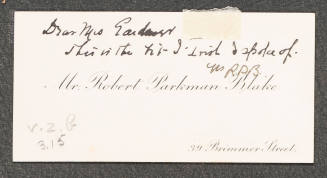 Dear Mrs Gardner
This is the bit I wish I spoke of.
Mrs R.P.B.
Mr. Robert Parkman Blake
v. 2. G
3.15
39 Brimmer Street.